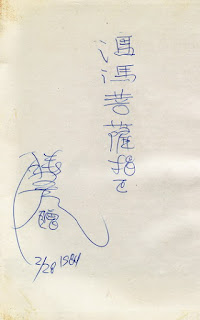 馮馮菩薩指正
贈
2/28 1984